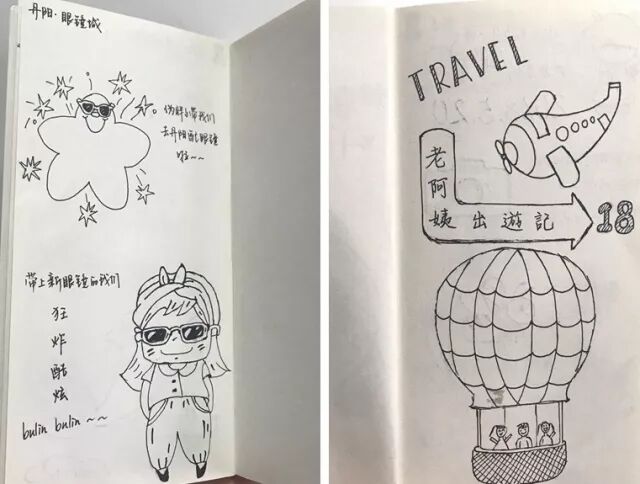 丹阳·眼镜城
伪胖小带我们
去丹阳配眼镜
啦~~
带上新眼镜的我们
狂
炸
酷
炫
bulin bulin~~
TRAVEL
老
阿
姨出遊記
18